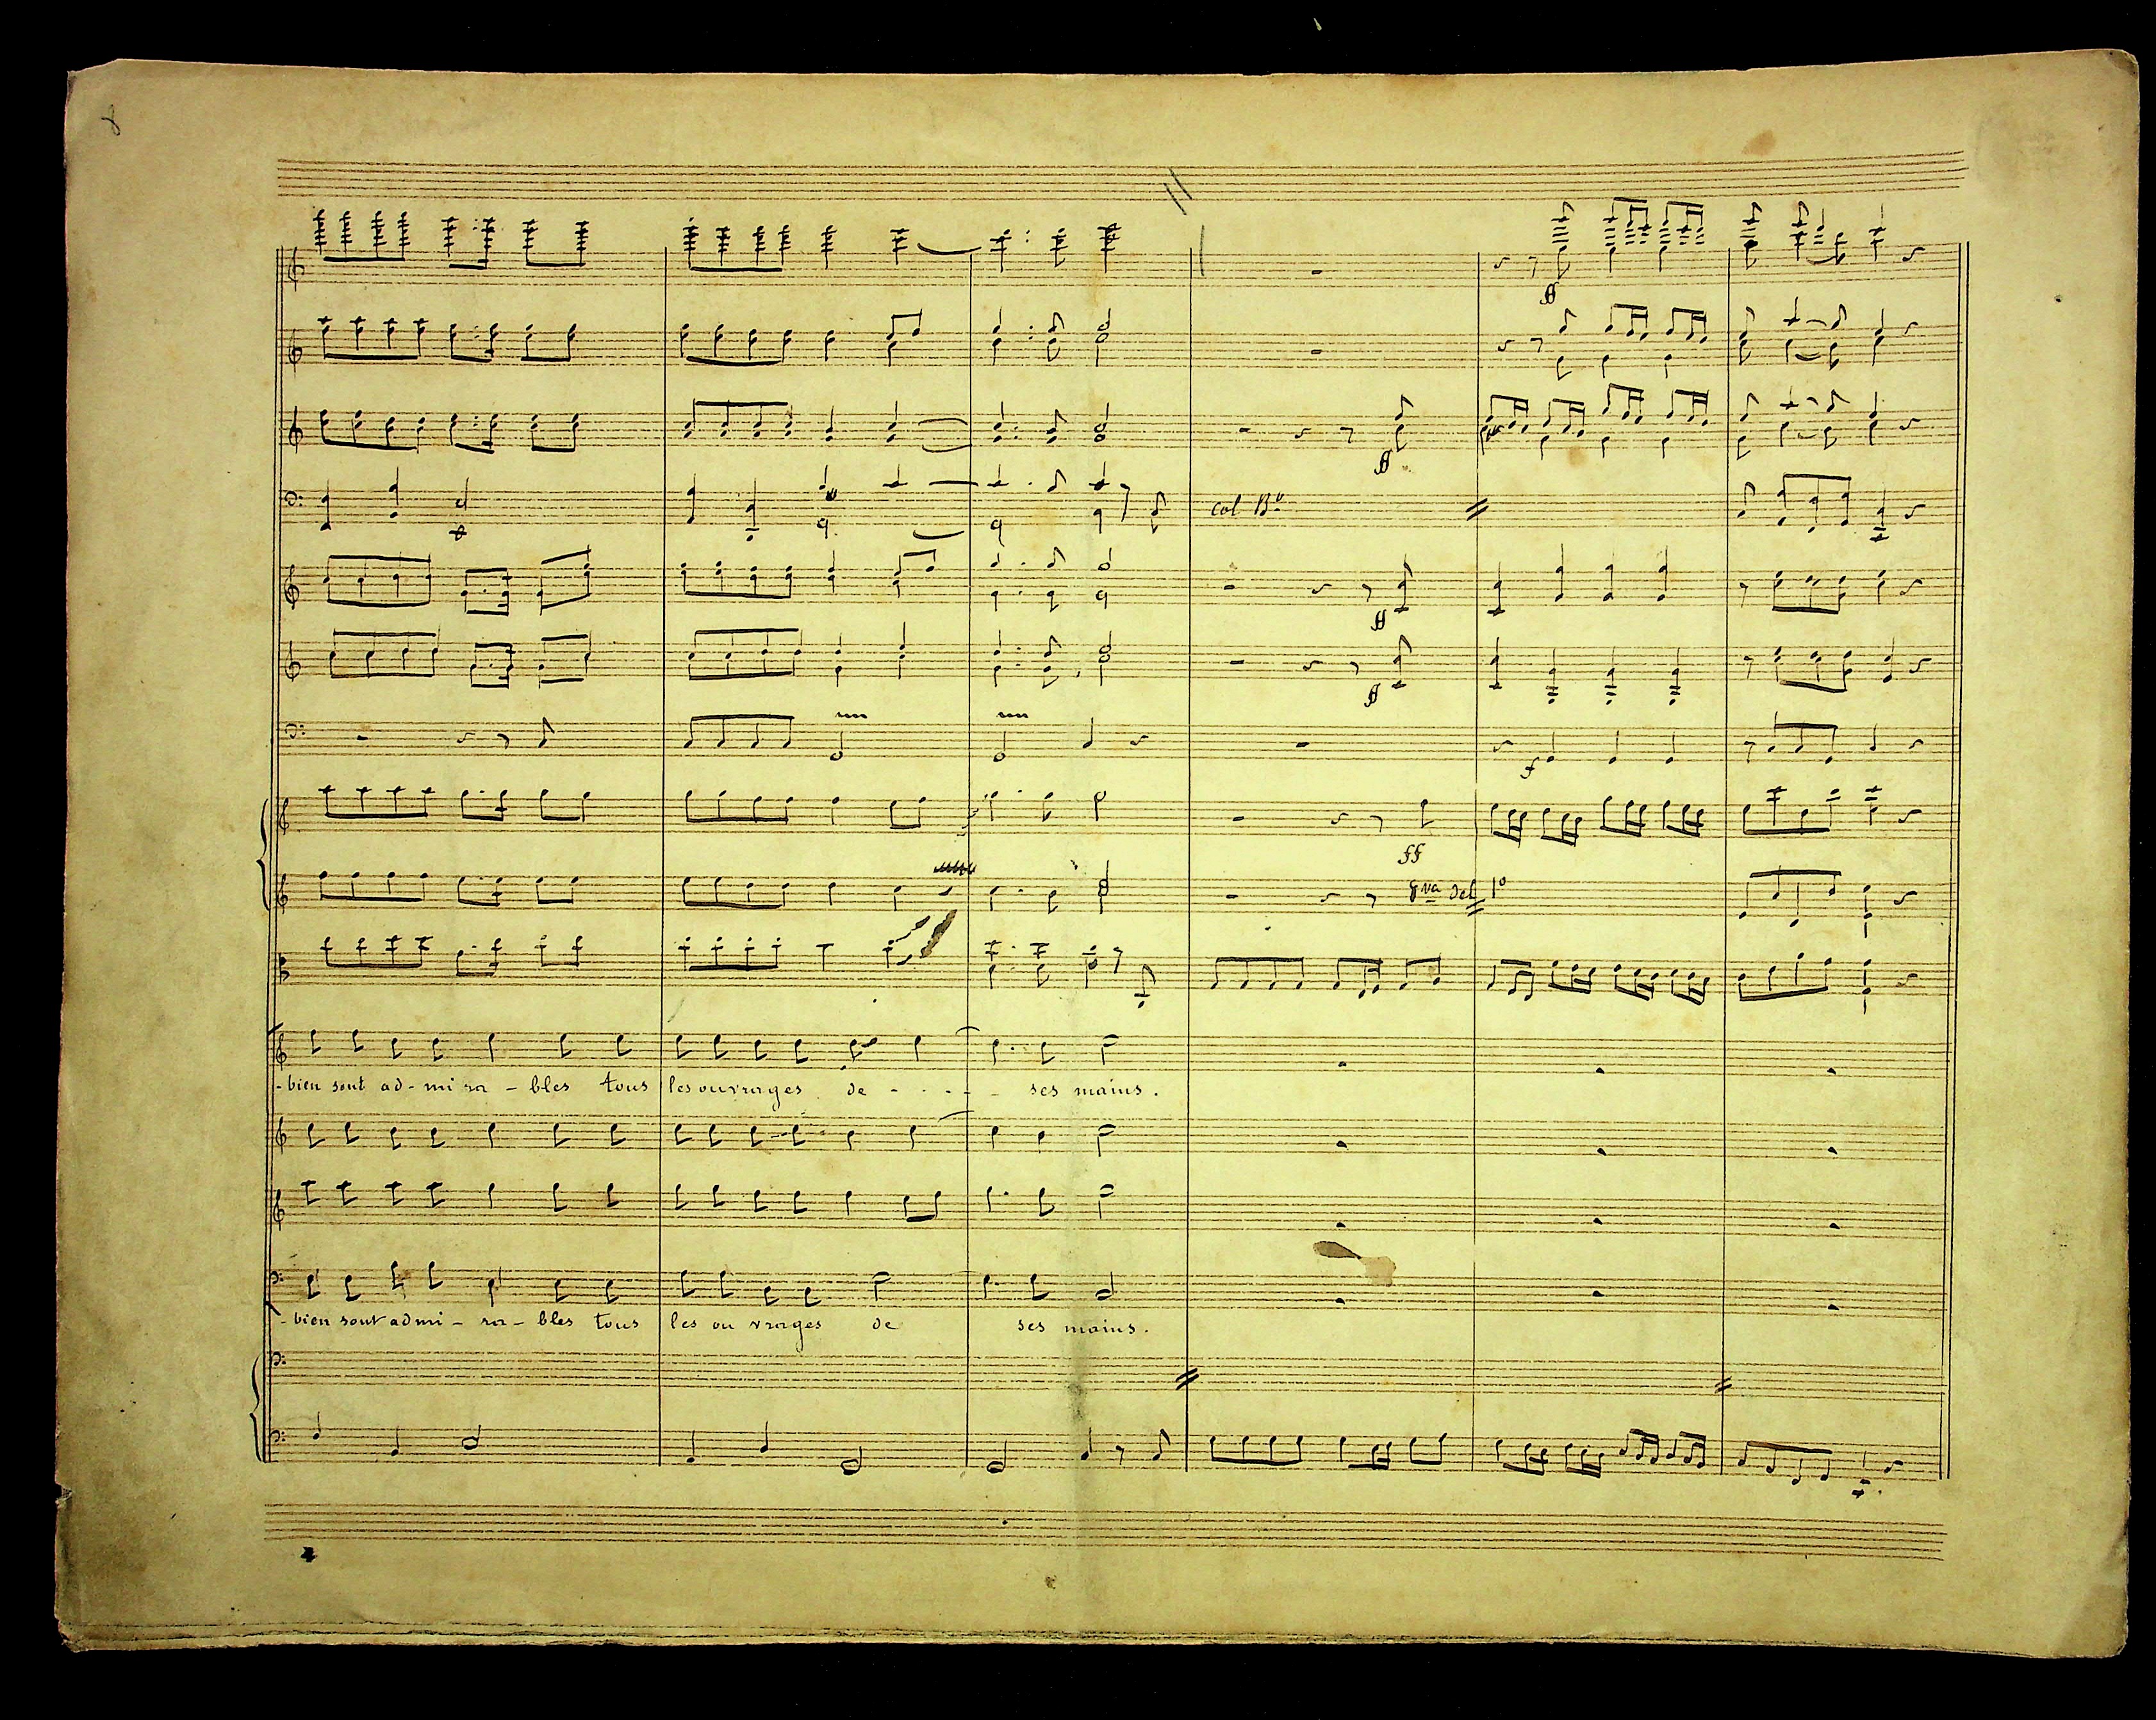 8
ff
ff
col B°
ff
ff
f
ff
8va del 1°
-bien sont ad-mi ra-bles tous les ouvrages de - - - - ses mains.
-bien sont admi-ra-bles tous les ou vrages de ses mains.